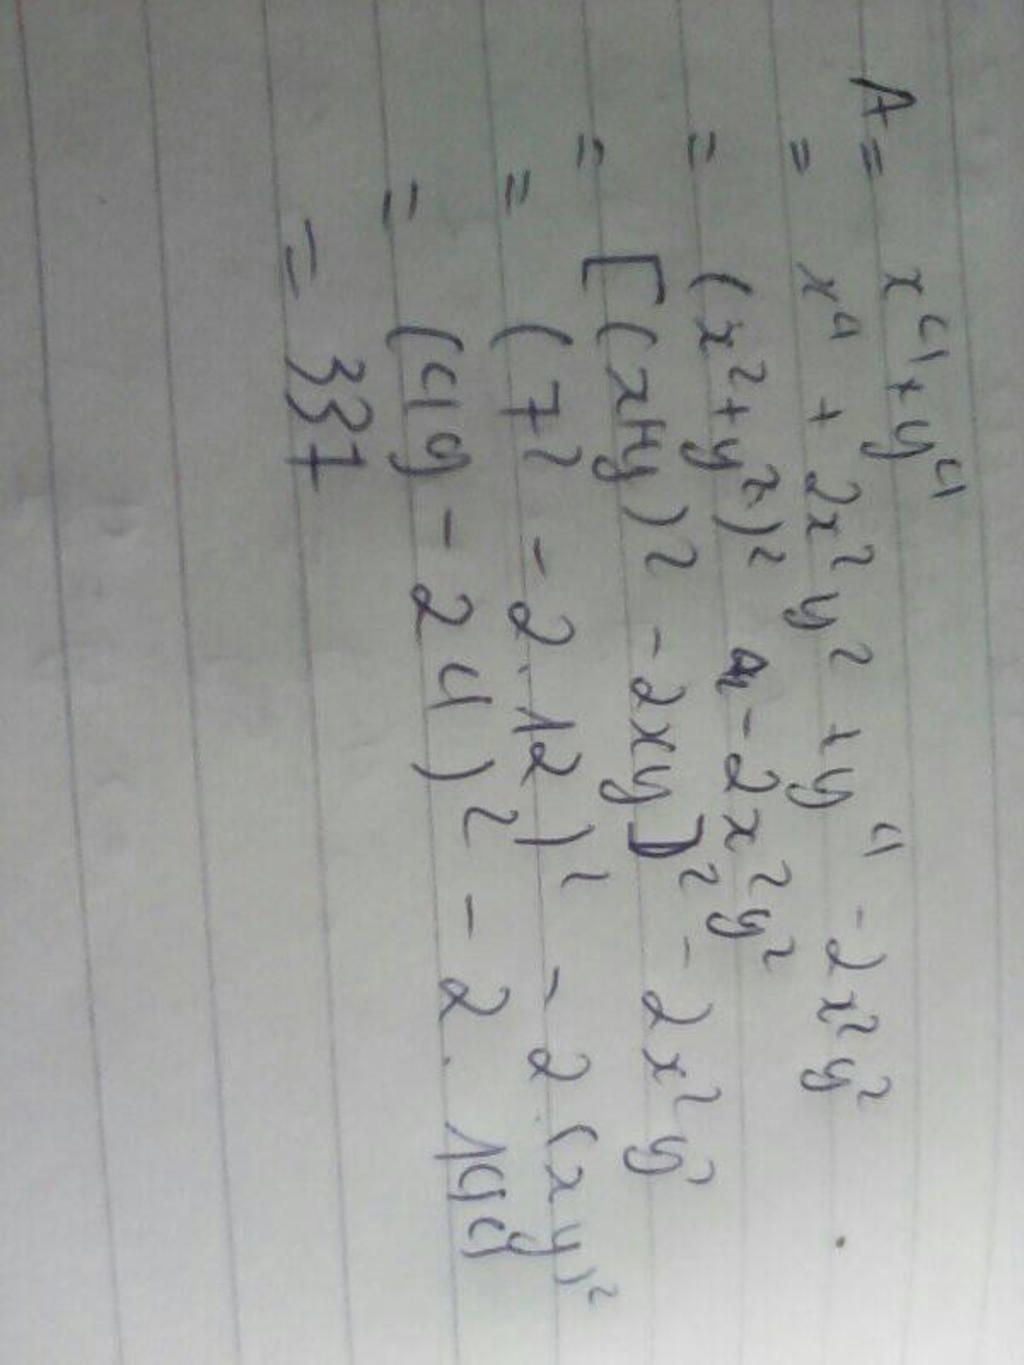 A = x⁴ + y⁴
= x⁴ + 2x² y² + y⁴ - 2x² y²
= (x² + y²)² - 2x² y²
= [(x+y)² - 2xy]² - 2x² y²
= (7² - 2.12)² - 2(xy)²
= (49 - 24)² - 2.144
= 337